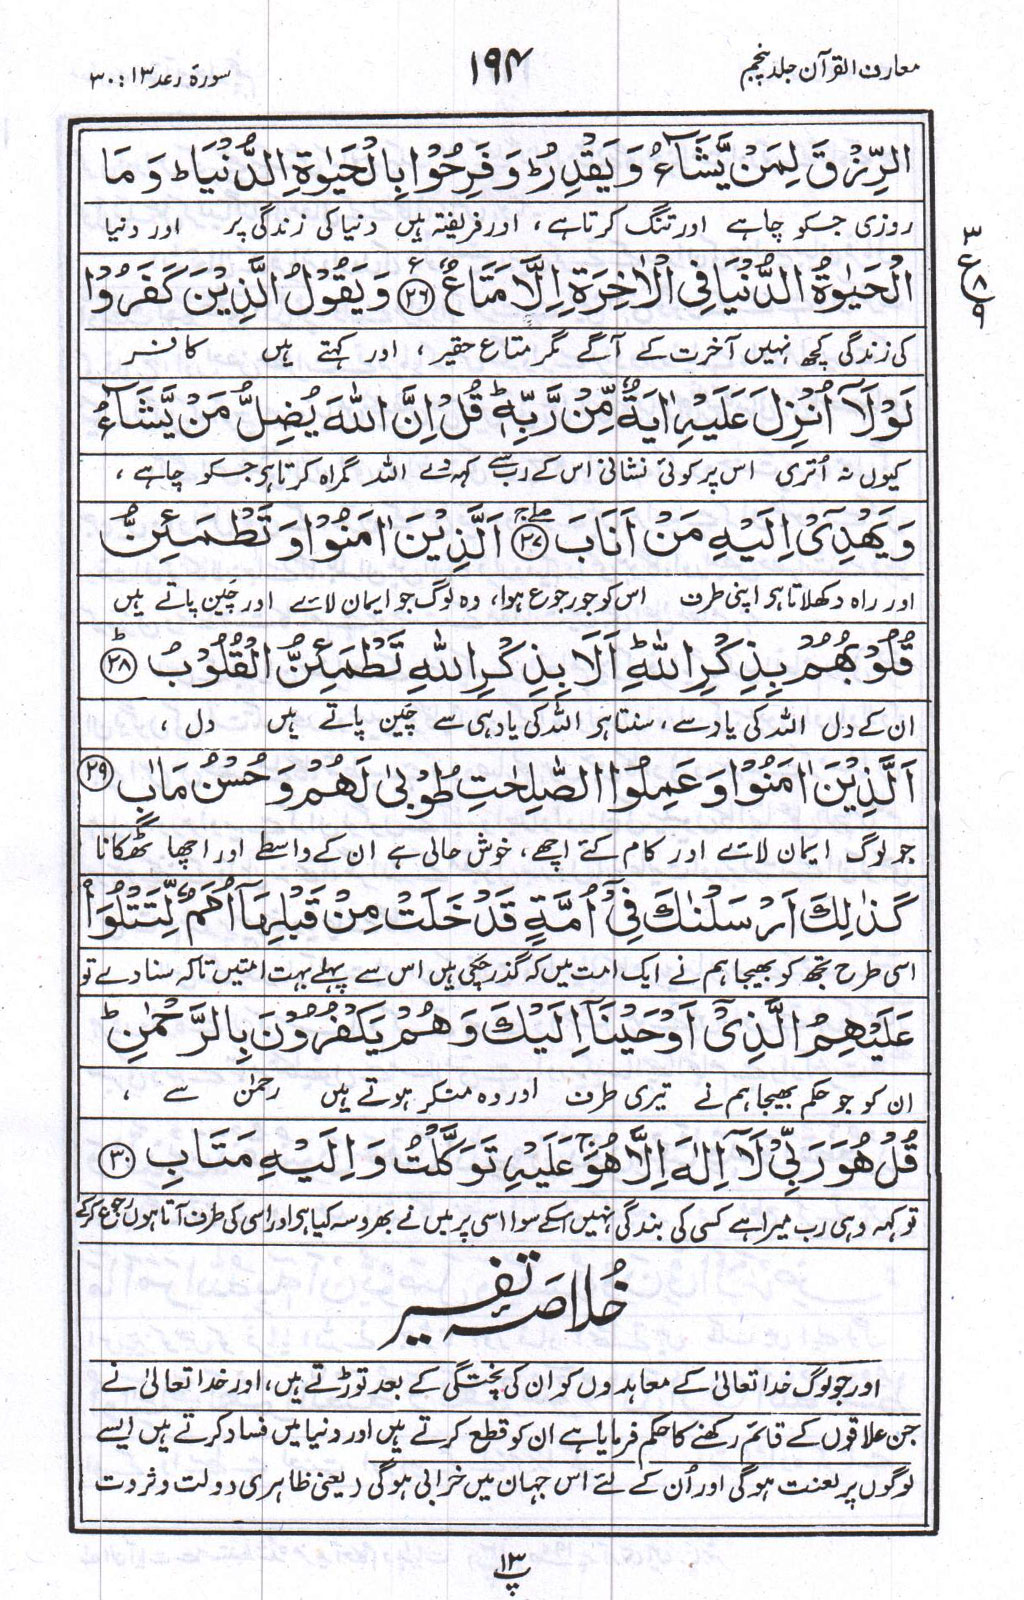 معارف القرآن جلد پنجم
۱۹۴
سورۃ رعد ۱۳: ۳۰
الرِّزْقَ لِمَنْ یَّشَآءُ وَیَقْدِرُ ؕ وَفَرِحُوْا بِالْحَیٰوۃِ الدُّنْیَا ؕ وَمَا
روزی جسکو چاہے اور تنگ کرتا ہے، اور فریفتہ ہیں دنیا کی زندگی پر اور دنیا
الْحَیٰوۃُ الدُّنْیَا فِی الْاٰخِرَۃِ اِلَّا مَتَاعٌ ﴿۲۶﴾ وَیَقُوْلُ الَّذِیْنَ کَفَرُوْا
۳
ع
۸
۹
کی زندگی کچھ نہیں آخرت کے آگے مگر متاع حقیر اور کہتے ہیں کافر
لَوْلَاۤ اُنْزِلَ عَلَیْہِ اٰیَۃٌ مِّنْ رَّبِّہٖ ؕ قُلْ اِنَّ اللّٰہَ یُضِلُّ مَنْ یَّشَآءُ
کیوں نہ اُتری اس پر کوئی نشانی اس کے رب سے کہہ دے اللہ گمراہ کرتا ہر جسکو چاہے،
وَیَہْدِیْۤ اِلَیْہِ مَنْ اَنَابَ ﴿۲۷﴾ اَلَّذِیْنَ اٰمَنُوْا وَتَطْمَئِنُّ
اور راہ دکھلاتا ہر اپنی طرف اس کو جو رجوع ہوا، وہ لوگ جو ایمان لائے اور چَین پاتے ہیں
قُلُوْبُہُمْ بِذِکْرِ اللّٰہِ ؕ اَلَا بِذِکْرِ اللّٰہِ تَطْمَئِنُّ الْقُلُوْبُ ﴿۲۸﴾ ؕ
ان کے دل اللہ کی یاد سے، سنتا ہر اللہ کی یاد ہی سے چَین پاتے ہیں دل،
اَلَّذِیْنَ اٰمَنُوْا وَعَمِلُوا الصّٰلِحٰتِ طُوْبٰی لَہُمْ وَحُسْنُ مَاٰبٍ ﴿۲۹﴾
جو لوگ ایمان لائے اور کام کئے اچھے، خوش حالی ہے ان کے واسطے اور اچھا ٹھکانا
کَذٰلِکَ اَرْسَلْنٰکَ فِیْۤ اُمَّۃٍ قَدْ خَلَتْ مِنْ قَبْلِہَاۤ اُمَمٌ لِّتَتْلُوَا۟
اسی طرح تجھ کو بھیجا ہم نے ایک امت میں کہ گذر چکی ہیں اس سے پہلے بہت امتیں تاکہ سنا دے تو
عَلَیْہِمُ الَّذِیْۤ اَوْحَیْنَاۤ اِلَیْکَ وَہُمْ یَکْفُرُوْنَ بِالرَّحْمٰنِ ؕ
ان کو جو حکم بھیجا ہم نے تیری طرف اور وہ منکر ہوتے ہیں رحمٰن سے،
قُلْ ہُوَ رَبِّیْ لَاۤ اِلٰہَ اِلَّا ہُوَ ۚ عَلَیْہِ تَوَکَّلْتُ وَاِلَیْہِ مَتَابِ ﴿۳۰﴾
تو کہہ وہی رب میرا ہے کسی کی بندگی نہیں اسکے سوا اسی پر میں نے بھروسہ کیا ہر اور اسی کی طرف آتا ہوں رجوع کر کے
خُلاصۂ تفسیر
اور جو لوگ خدا تعالیٰ کے معاہدوں کو ان کی پختگی کے بعد توڑتے ہیں، اور خدا تعالیٰ نے
جن علاقوں کے قائم رکھنے کا حکم فرمایا ہے ان کو قطع کرتے ہیں اور دنیا میں فساد کرتے ہیں ایسے
لوگوں پر لعنت ہوگی اور اُن کے لئے اس جہان میں خرابی ہوگی (یعنی ظاہری دولت و ثروت
۱۳
پ